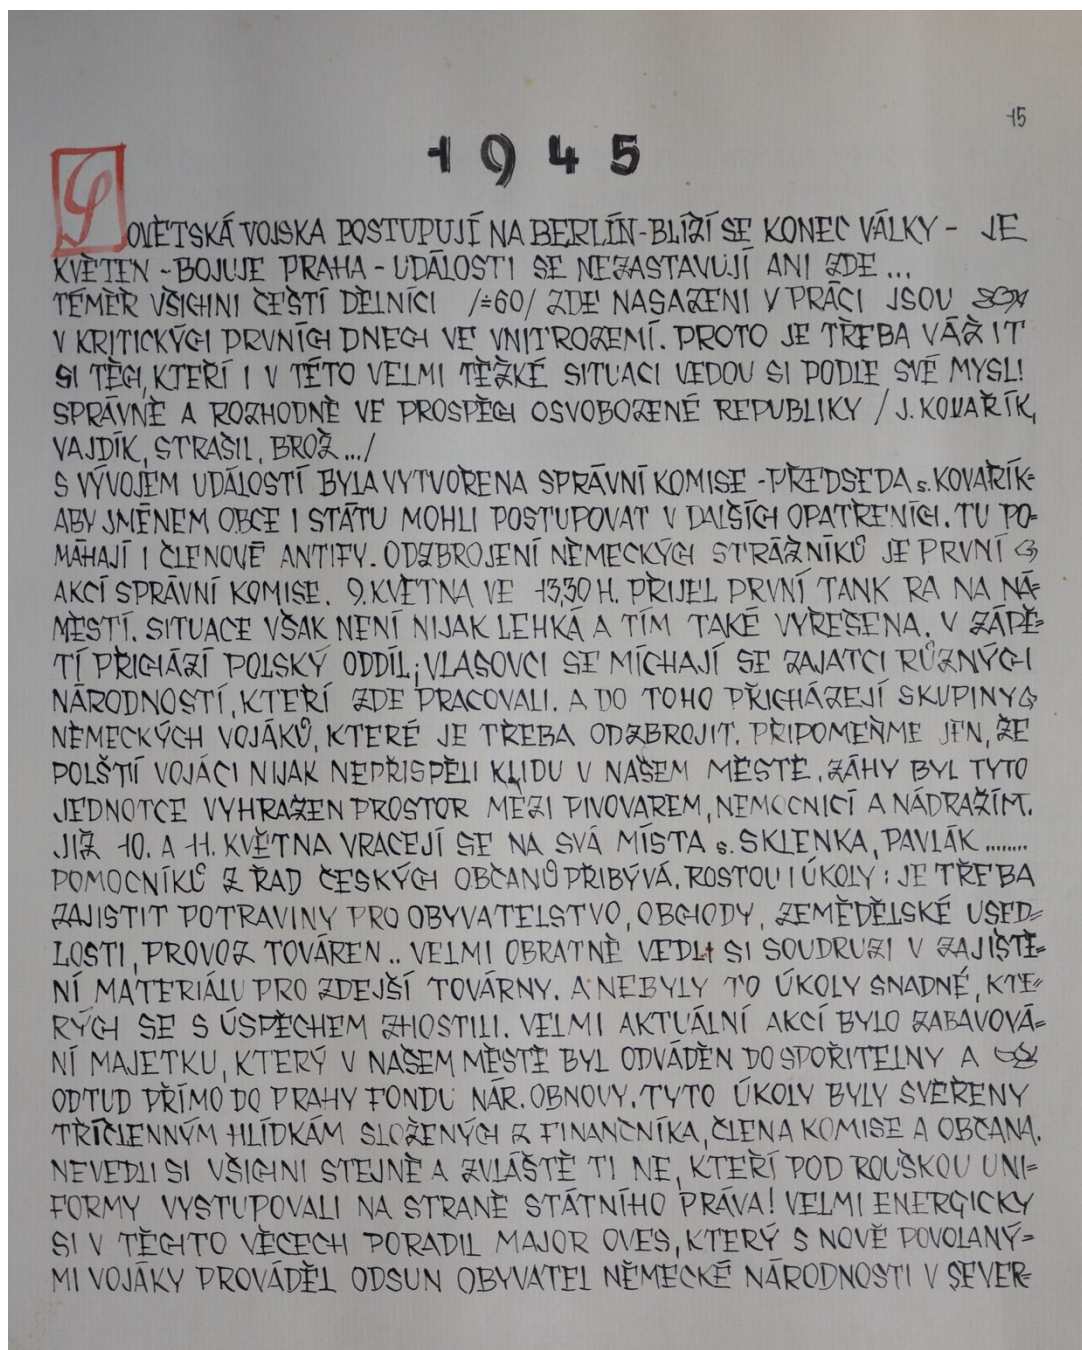 15
1945
SOVĚTSKÁ VOJSKA POSTUPUJÍ NA BERLÍN-BLÍŽÍ SE KONEC VÁLKY - JE
KVĚTEN - BOJUJE PRAHA - UDÁLOSTI SE NEZASTAVUJÍ ANI ZDE...
TÉMĚŘ VŠICHNI ČEŠTÍ DĚLNÍCI /≐60/ ZDE NASAZENI V PRÁCI JSOU
V KRITICKÝCH PRVNÍCH DNECH VE VNITROZEMÍ. PROTO JE TŘEBA VÁŽIT
SI TĚCH, KTEŘÍ I V TÉTO VELMI TĚŽKÉ SITUACI VEDOU SI PODLE SVÉ MYSLI
SPRÁVNĚ A ROZHODNĚ VE PROSPĚCH OSVOBOZENÉ REPUBLIKY / J. KOVAŘÍK,
VAJDÍK, STRAŠIL, BROŽ.../
S VÝVOJEM UDÁLOSTÍ BYLA VYTVOŘENA SPRÁVNÍ KOMISE - PŘEDSEDA s. KOVAŘÍK-
ABY JMÉNEM OBCE I STÁTU MOHLI POSTUPOVAT V DALŠÍCH OPATŘENÍCH. TU PO=
MÁHAJÍ I ČLENOVÉ ANTIFY. ODZBROJENÍ NĚMECKÝCH STRÁŽNÍKŮ JE PRVNÍ
AKCÍ SPRÁVNÍ KOMISE. 9. KVĚTNA VE 13,30 H. PŘIJEL PRVNÍ TANK RA NA NÁ=
MĚSTÍ. SITUACE VŠAK NENÍ NIJAK LEHKÁ A TÍM TAKÉ VYŘEŠENA. V ZÁPĚ=
TÍ PŘICHÁZÍ POLSKÝ ODDÍL; VLASOVCI SE MÍCHAJÍ SE ZAJATCI RŮZNÝCH
NÁRODNOSTÍ, KTEŘÍ ZDE PRACOVALI. A DO TOHO PŘICHÁZEJÍ SKUPINY
NĚMECKÝCH VOJÁKŮ, KTERÉ JE TŘEBA ODZBROJIT. PŘIPOMEŇME JEN, ŽE
POLŠTÍ VOJÁCI NIJAK NEPŘISPĚLI KLIDU V NAŠEM MĚSTĚ. ZÁHY BYL TYTO
JEDNOTCE VYHRAŽEN PROSTOR MEZI PIVOVAREM, NEMOCNICÍ A NÁDRAŽÍM.
JIŽ 10. A 11. KVĚTNA VRACEJÍ SE NA SVÁ MÍSTA s. SKLENKA, PAVLÁK ........
POMOCNÍKŮ Z ŘAD ČESKÝCH OBČANŮ PŘIBÝVÁ. ROSTOU I ÚKOLY: JE TŘEBA
ZAJISTIT POTRAVINY PRO OBYVATELSTVO, OBCHODY, ZEMĚDĚLSKÉ USED=
LOSTI, PROVOZ TOVÁREN .. VELMI OBRATNĚ VEDLI SI SOUDRUZI V ZAJIŠTĚ=
NÍ MATERIÁLU PRO ZDEJŠÍ TOVÁRNY. A NEBYLY TO ÚKOLY SNADNÉ, KTE=
RÝCH SE S ÚSPĚCHEM ZHOSTILI. VELMI AKTUÁLNÍ AKCÍ BYLO ZABAVOVÁ=
NÍ MAJETKU, KTERÝ V NAŠEM MĚSTĚ BYL ODVÁDĚN DO SPOŘITELNY A
ODTUD PŘÍMO DO PRAHY FONDU NÁR. OBNOVY. TYTO ÚKOLY BYLY SVĚŘENY
TŘÍČLENNÝM HLÍDKÁM SLOŽENÝCH Z FINANČNÍKA, ČLENA KOMISE A OBČANA.
NEVEDLI SI VŠICHNI STEJNĚ A ZVLÁŠTĚ TI NE, KTEŘÍ POD ROUŠKOU UNI=
FORMY VYSTUPOVALI NA STRANĚ STÁTNÍHO PRÁVA! VELMI ENERGICKY
SI V TĚCHTO VĚCECH PORADIL MAJOR OVES, KTERÝ S NOVĚ POVOLANÝ=
MI VOJÁKY PROVÁDĚL ODSUN OBYVATEL NĚMECKÉ NÁRODNOSTI V SEVER=